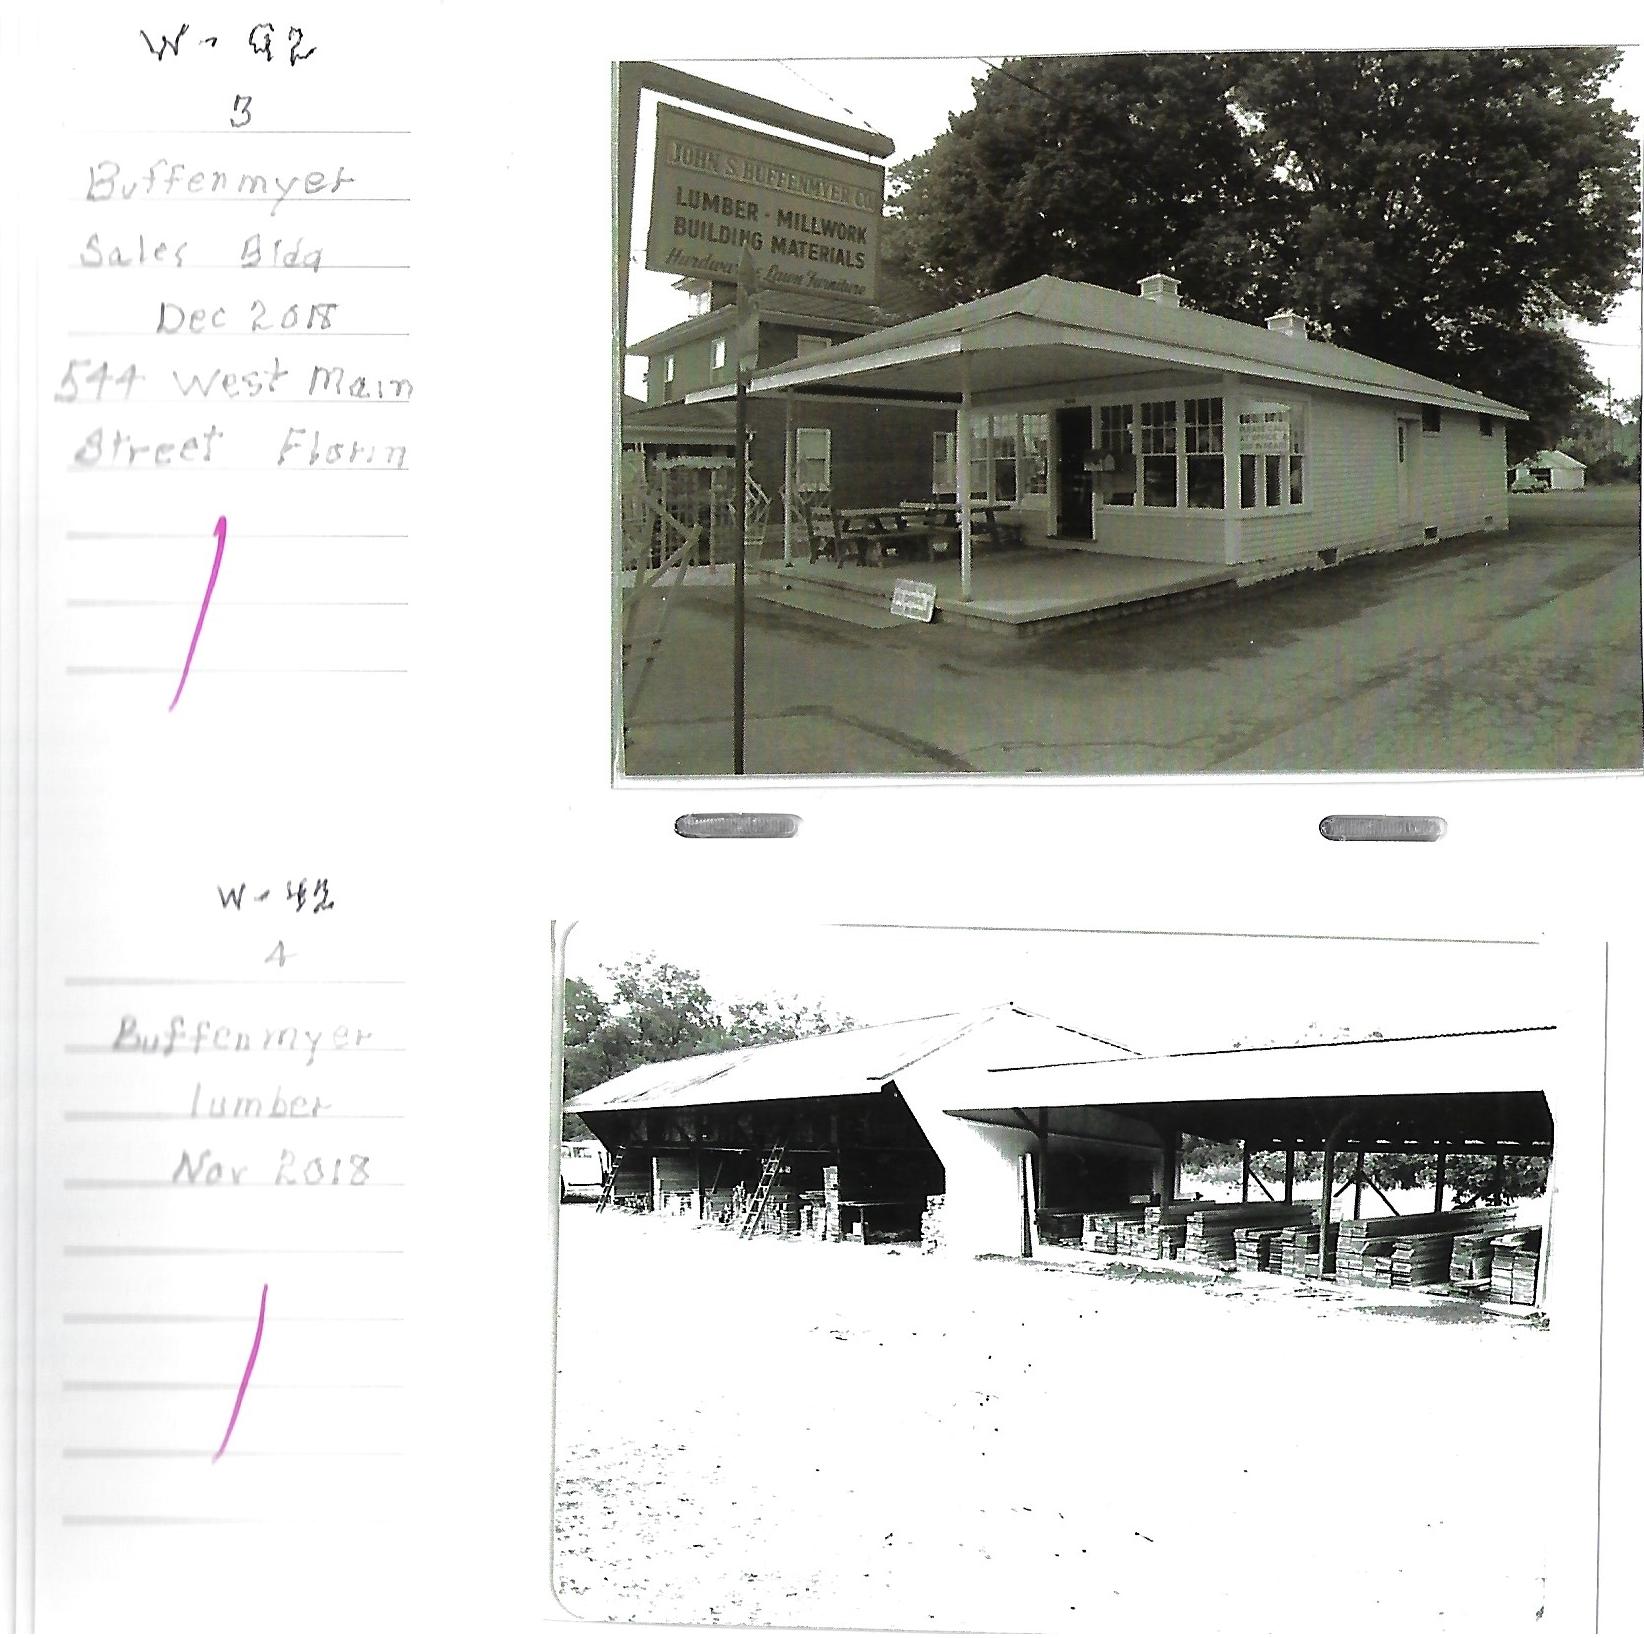 W - 92
3
Buffenmyer
Sales Bldg
Dec 2018
544 West Main
Street Florin
JOHN S. BUFFENMYER CO.
LUMBER - MILLWORK
BUILDING MATERIALS
Hardware Lawn Furniture
W - 42
4
Buffenmyer
lumber
Nov 2018